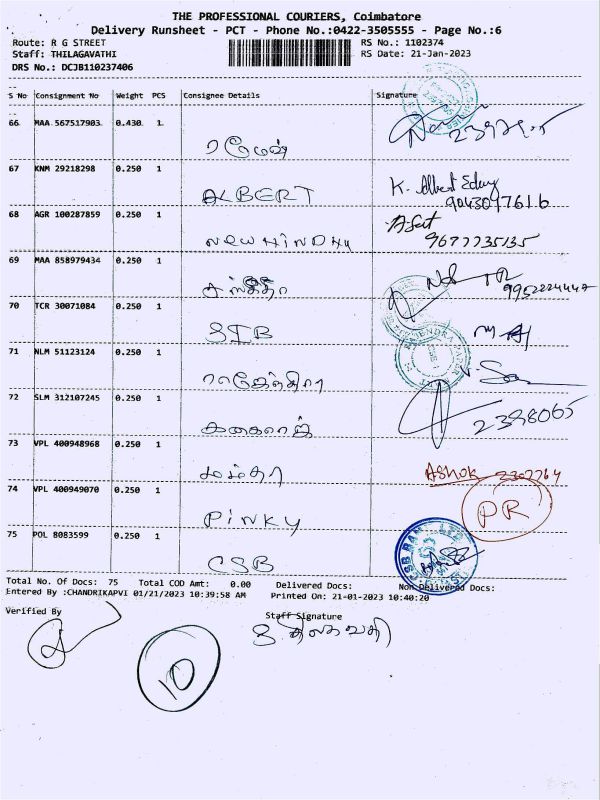 THE PROFESSIONAL COURIERS, Coimbatore
Delivery Runsheet - PCT - Phone No.:0422-3505555 - Page No.:6
Route: R G STREET RS No.: 1102374
Staff: THILAGAVATHI RS Date: 21-Jan-2023
DRS No.: DCJB110237406
S No Consignment No Weight PCS Consignee Details Signature
66 MAA 567517903 0.430 1
ரமேஷ்
67 KNM 29218298 0.250 1
ALBERT K. Albert
9043047616
68 AGR 100287859 0.250 1
NEW HINDHU 9677735135
69 MAA 858979434 0.250 1
9952224442
70 TCR 30071084 0.250 1
SIB
71 NLM 51123124 0.250 1
ராஜேந்திரா
72 SLM 312107245 0.250 1
2398065
73 VPL 400948968 0.250 1
மம்தா ASHOK 2307764
74 VPL 400949070 0.250 1
PINKY PR
75 POL 8083599 0.250 1
CSB
Total No. Of Docs: 75 Total COD Amt: 0.00 Delivered Docs: Non Delivered Docs:
Entered By :CHANDRIKAPVI 01/21/2023 10:39:58 AM Printed On: 21-01-2023 10:40:20
Verified By Staff Signature
திலகவதி
10